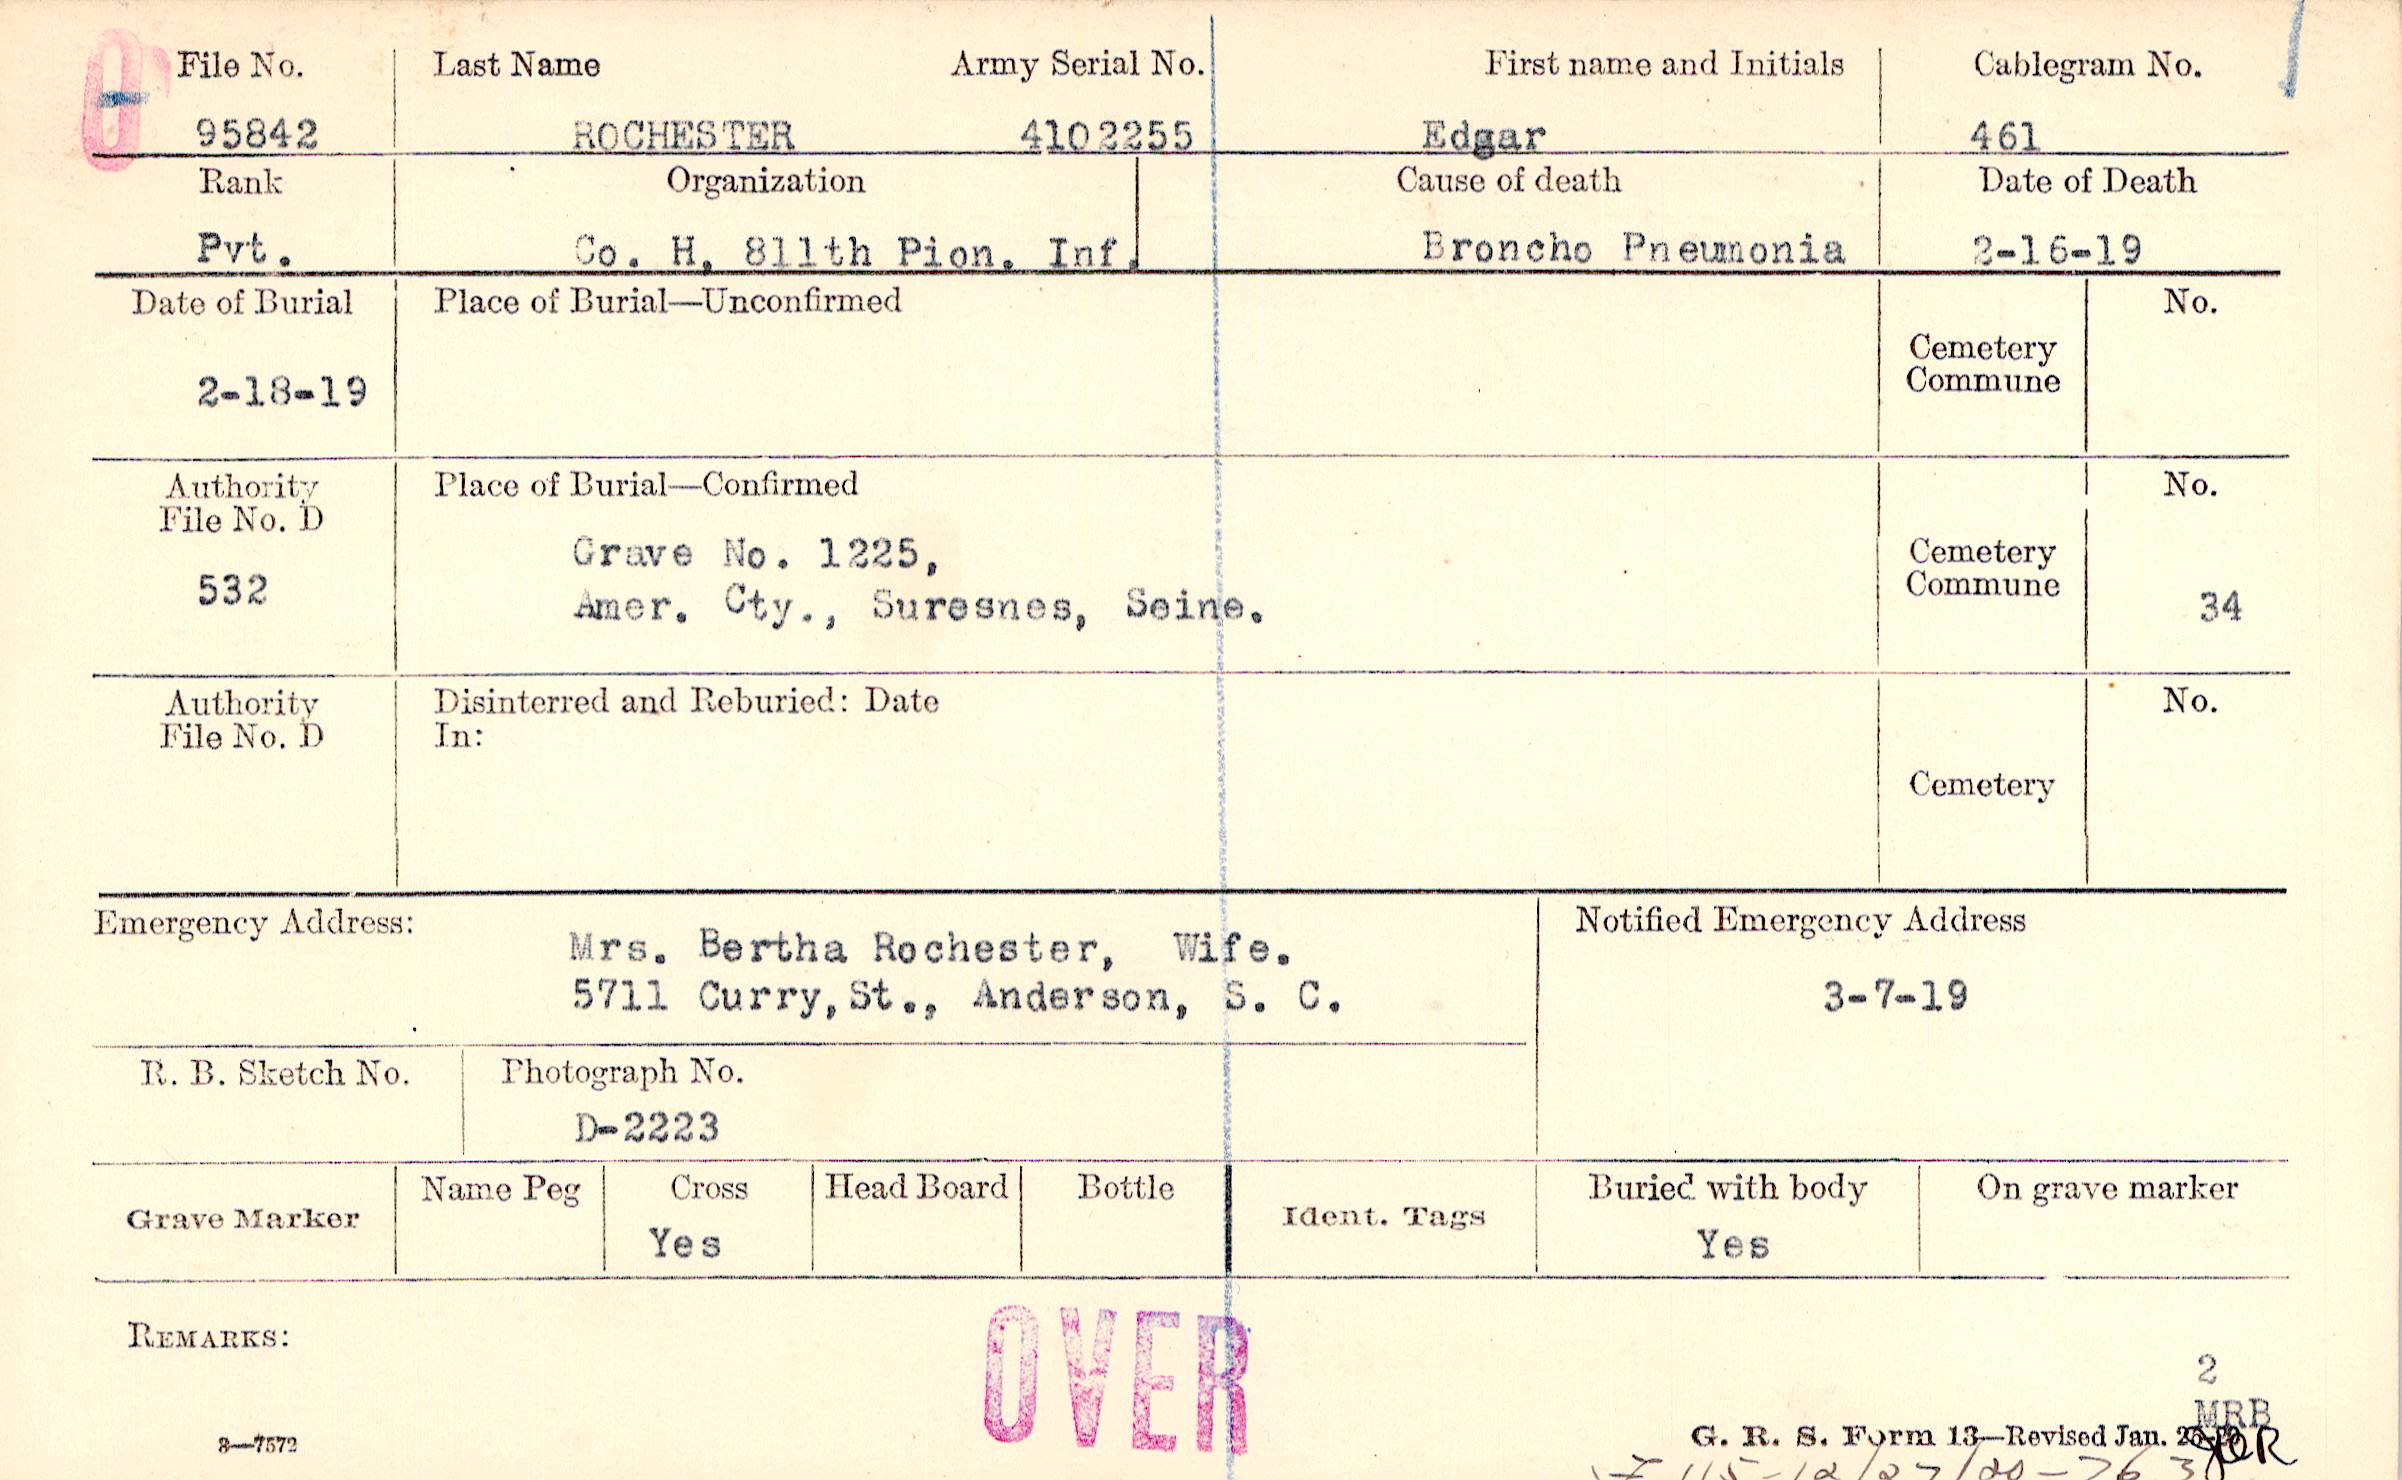 File No. Last Name Army Serial No. First name and Initials Cablegram No.
95842 ROCHESTER 4102255 Edgar 461
Rank Organization Cause of death Date of Death
Pvt. Co. H, 811th Pion. Inf. Broncho Pneumonia 2-16-19
Date of Burial Place of Burial—Unconfirmed No.
Cemetery
Commune
2-18-19
Authority Place of Burial—Confirmed No.
File No. D
Grave No. 1225, Cemetery
532 Commune
Amer. Cty., Suresnes, Seine. 34
Authority Disinterred and Reburied: Date No.
File No. D In:
Cemetery
Emergency Address: Notified Emergency Address
Mrs. Bertha Rochester, Wife.
5711 Curry,St., Anderson, S. C. 3-7-19
R. B. Sketch No. Photograph No.
D-2223
Name Peg Cross Head Board Bottle Buried with body On grave marker
Grave Marker Ident. Tags
Yes Yes
REMARKS:
OVER
2
MRB
3—7572 G. R. S. Form 13—Revised Jan.